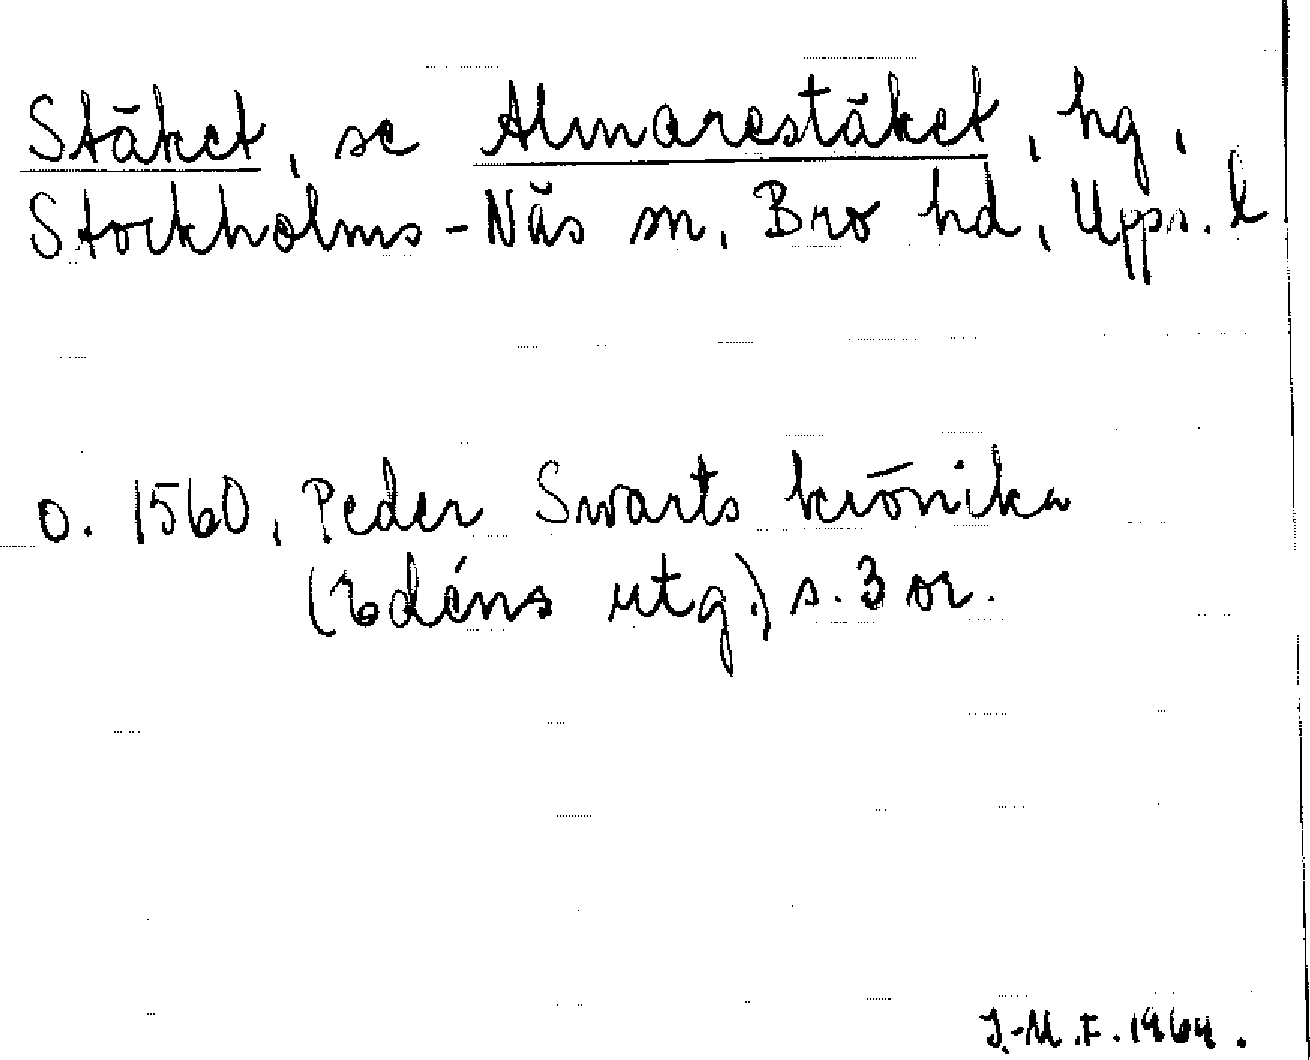 Stäket, se Almarestäket, hg,
Stockholms-Näs sn, Bro hd, Upps. l
o. 1560, Peder Swarts krönika
(Edéns utg.) s. 3 or.
J.-M.F. 1964.